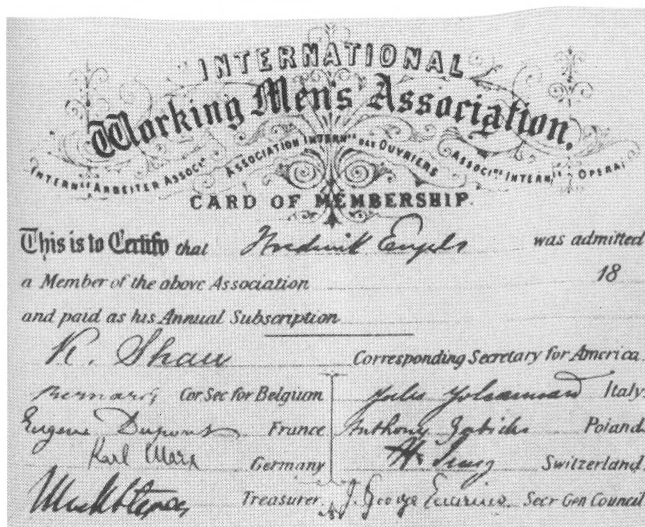 INTERNATIONAL
Working Men's Association.
INTERN^LE ARBEITER ASSOC^N ASSOCIATION INTERN^LE DES OUVRIERS ASSOC^NE INTERN^LE OPERAI
CARD OF MEMBERSHIP.
This is to Certify that Frederick Engels was admitted
a Member of the above Association 18
and paid as his Annual Subscription
R. Shaw Corresponding Secretary for America.
Bernard Cor Sec for Belgium Italy.
Eugene Dupont France Anthony Zabicki Poland.
Karl Marx Germany H. Jung Switzerland.
Treasurer J. George Eccarius Secr Gen Council